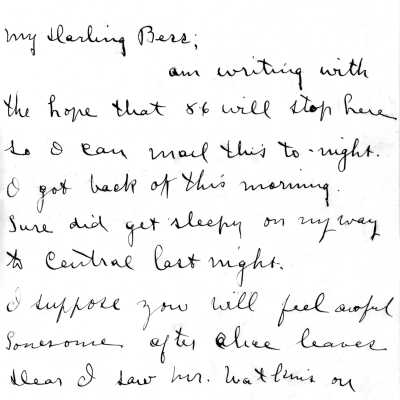 My Darling Bess;
am writing with
the hope that 86 will stop here
so I can mail this to-night.
I got back ok this morning.
Sure did get sleepy on my way
to Central last night.
I suppose you will feel awful
Lonesome after Alice leaves
Dear I saw Mr. Watkins on